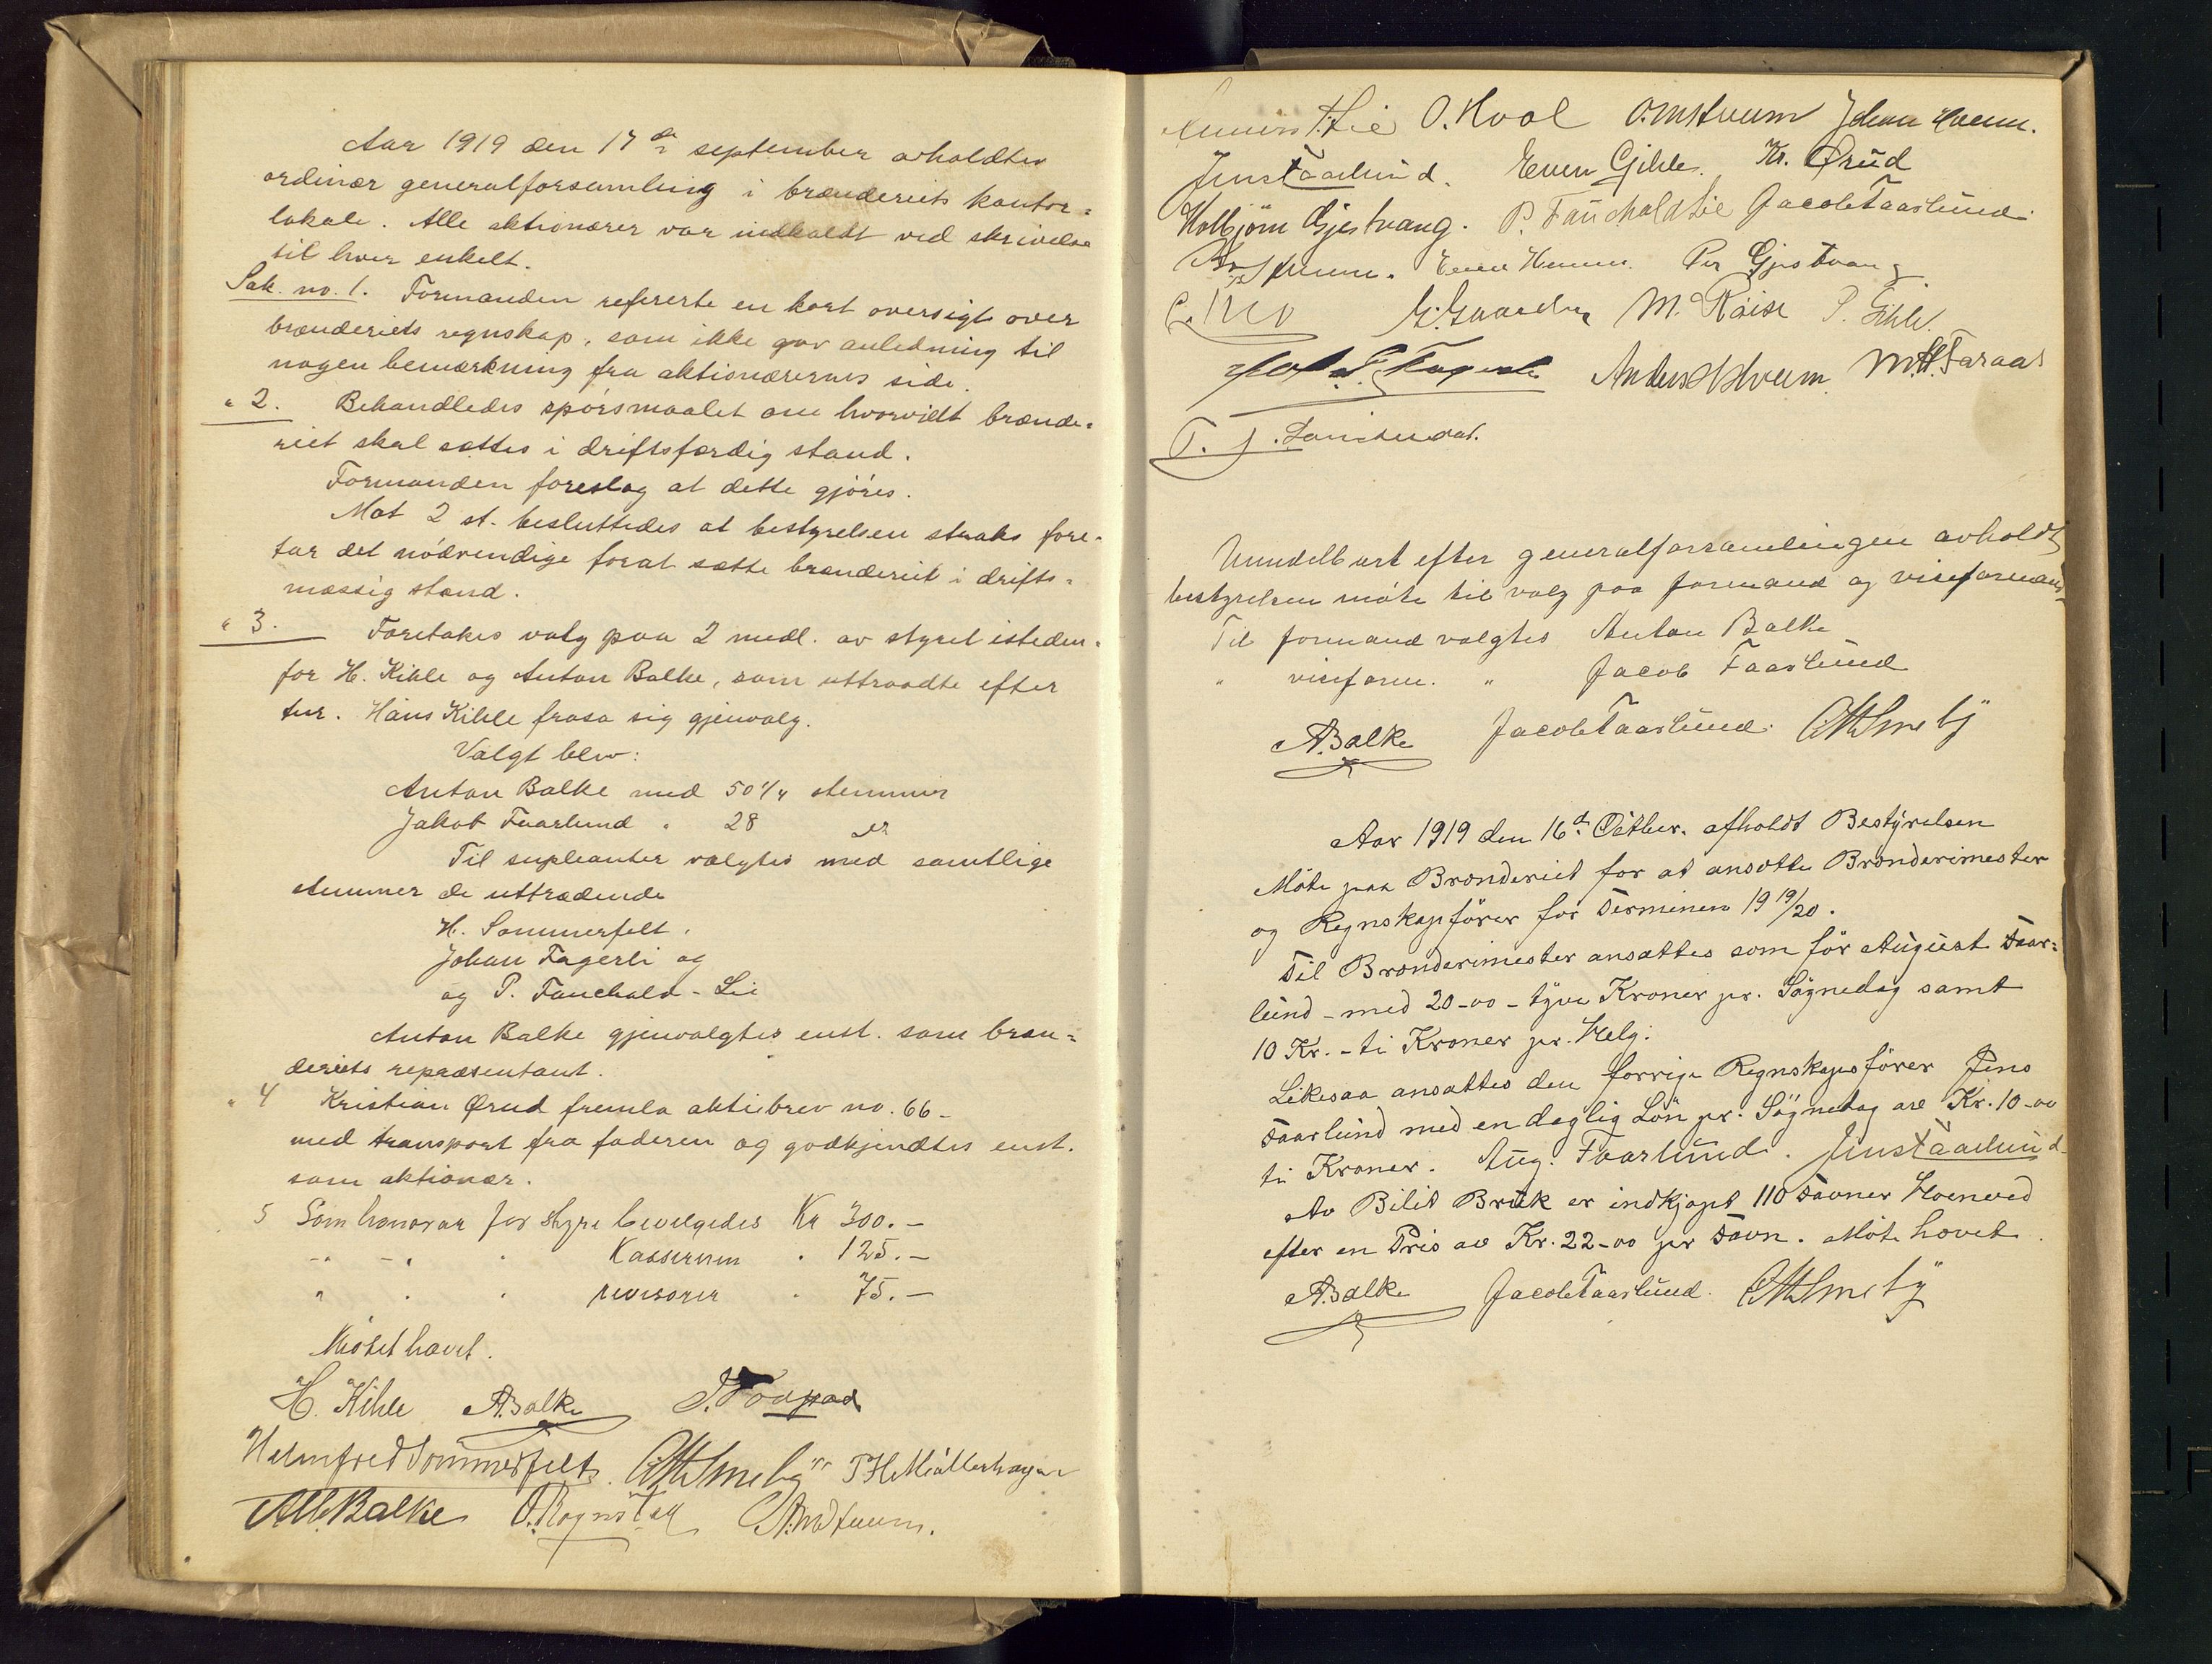 Aar 1919 den 17de september avholdtes
ordinær generalforsamling i brænderiets kontor=
lokale. Alle aktionærer var indkaldt ved skrivelse
til hver enkelt.
Sak no. 1. Formanden refererte en kort oversigt over
brænderiets regnskap, som ikke gav anledning til
nogen bemærkning fra aktionærernes side.
" 2. Behandledes spörsmaalet om hvorvidt brænde=
riet skal sættes i driftsfærdig stand.
Formanden foreslog at dette gjöres.
Mot 2 st. besluttedes at bestyrelsen straks fore=
tar det nödvendige forat sætte brænderiet i drifts=
mæssig stand.
" 3. Foretokes valg paa 2 medl. av styret isteden=
for H. Kihle og Anton Balke, som uttraadte efter
tur. Hans Kihle frasa sig gjenvalg.
Valgt blev:
Anton Balke med 50 1/4 stemmer
Jakob Faarlund " 28 do
Til supleanter valgtes med samtlige
stemmer de uttrædende
H. Sommerfelt,
Johan Fagerli og
og P. Fauchald-Lie
Anton Balke gjenvalgtes enst. som bræn=
deriets repræsentant.
" 4 Kristian Ørud fremla aktiebrev no. 66-
med transport fra faderen og godkjendtes enst.
som aktionær.
5 Som honorar for styre bevilgedes Kr 300.-
" " " Kassereren " 125.-
" " " revisorer " 75.-
Mötet hævet.
H. Kihle A. Balke
Halmfred Sommerfelt. Smeby T H Möllerhagen
Alb. Balke O. Rognstad
Lie O. Hool O. Mstuum Johan
Jens Faarlund. Even Gihle. Kr. Ørud
Kolbjörn Gjestvang. P. Fauchald Lie Jacob Faarlund
Even Per Gjestvang
M. Röise P. Gihle.
Anders M.H. Faraas
Umidelbart efter generalforsamlingen avholdt
bestyrelsen möte til valg paa formand og viseforman
Til formand valgtes Anton Balke
" viseform. " Jacob Faarlund
A. Balke Jacob Faarlund. Smeby
Aar 1919 den 16d. Octber. afholdt Bestyrelsen
Möte paa Brænderiet for at ansætte Brænderimester
og Regnskapförer for Terminen 19 19/20.
Til Brænderimester ansattes som för August Faar=
lund - med 20-00 - tyve Kroner pr. Sögnedag samt
10 Kr. - ti Kroner pr. Helg.
Likesaa ansattes den forrige Regnskapsförer Jens
Faarlund med en daglig Lön pr. Sögnedag av Kr. 10-00
ti Kroner. Aug. Faarlund. Jens Faarlund
Av Bilit Bruk er indkjöpt 110 Favner Hoenved
efter en Pris av Kr. 22-00 pr Favn. Möte hævet.
A. Balke Jacob Faarlund. Smeby